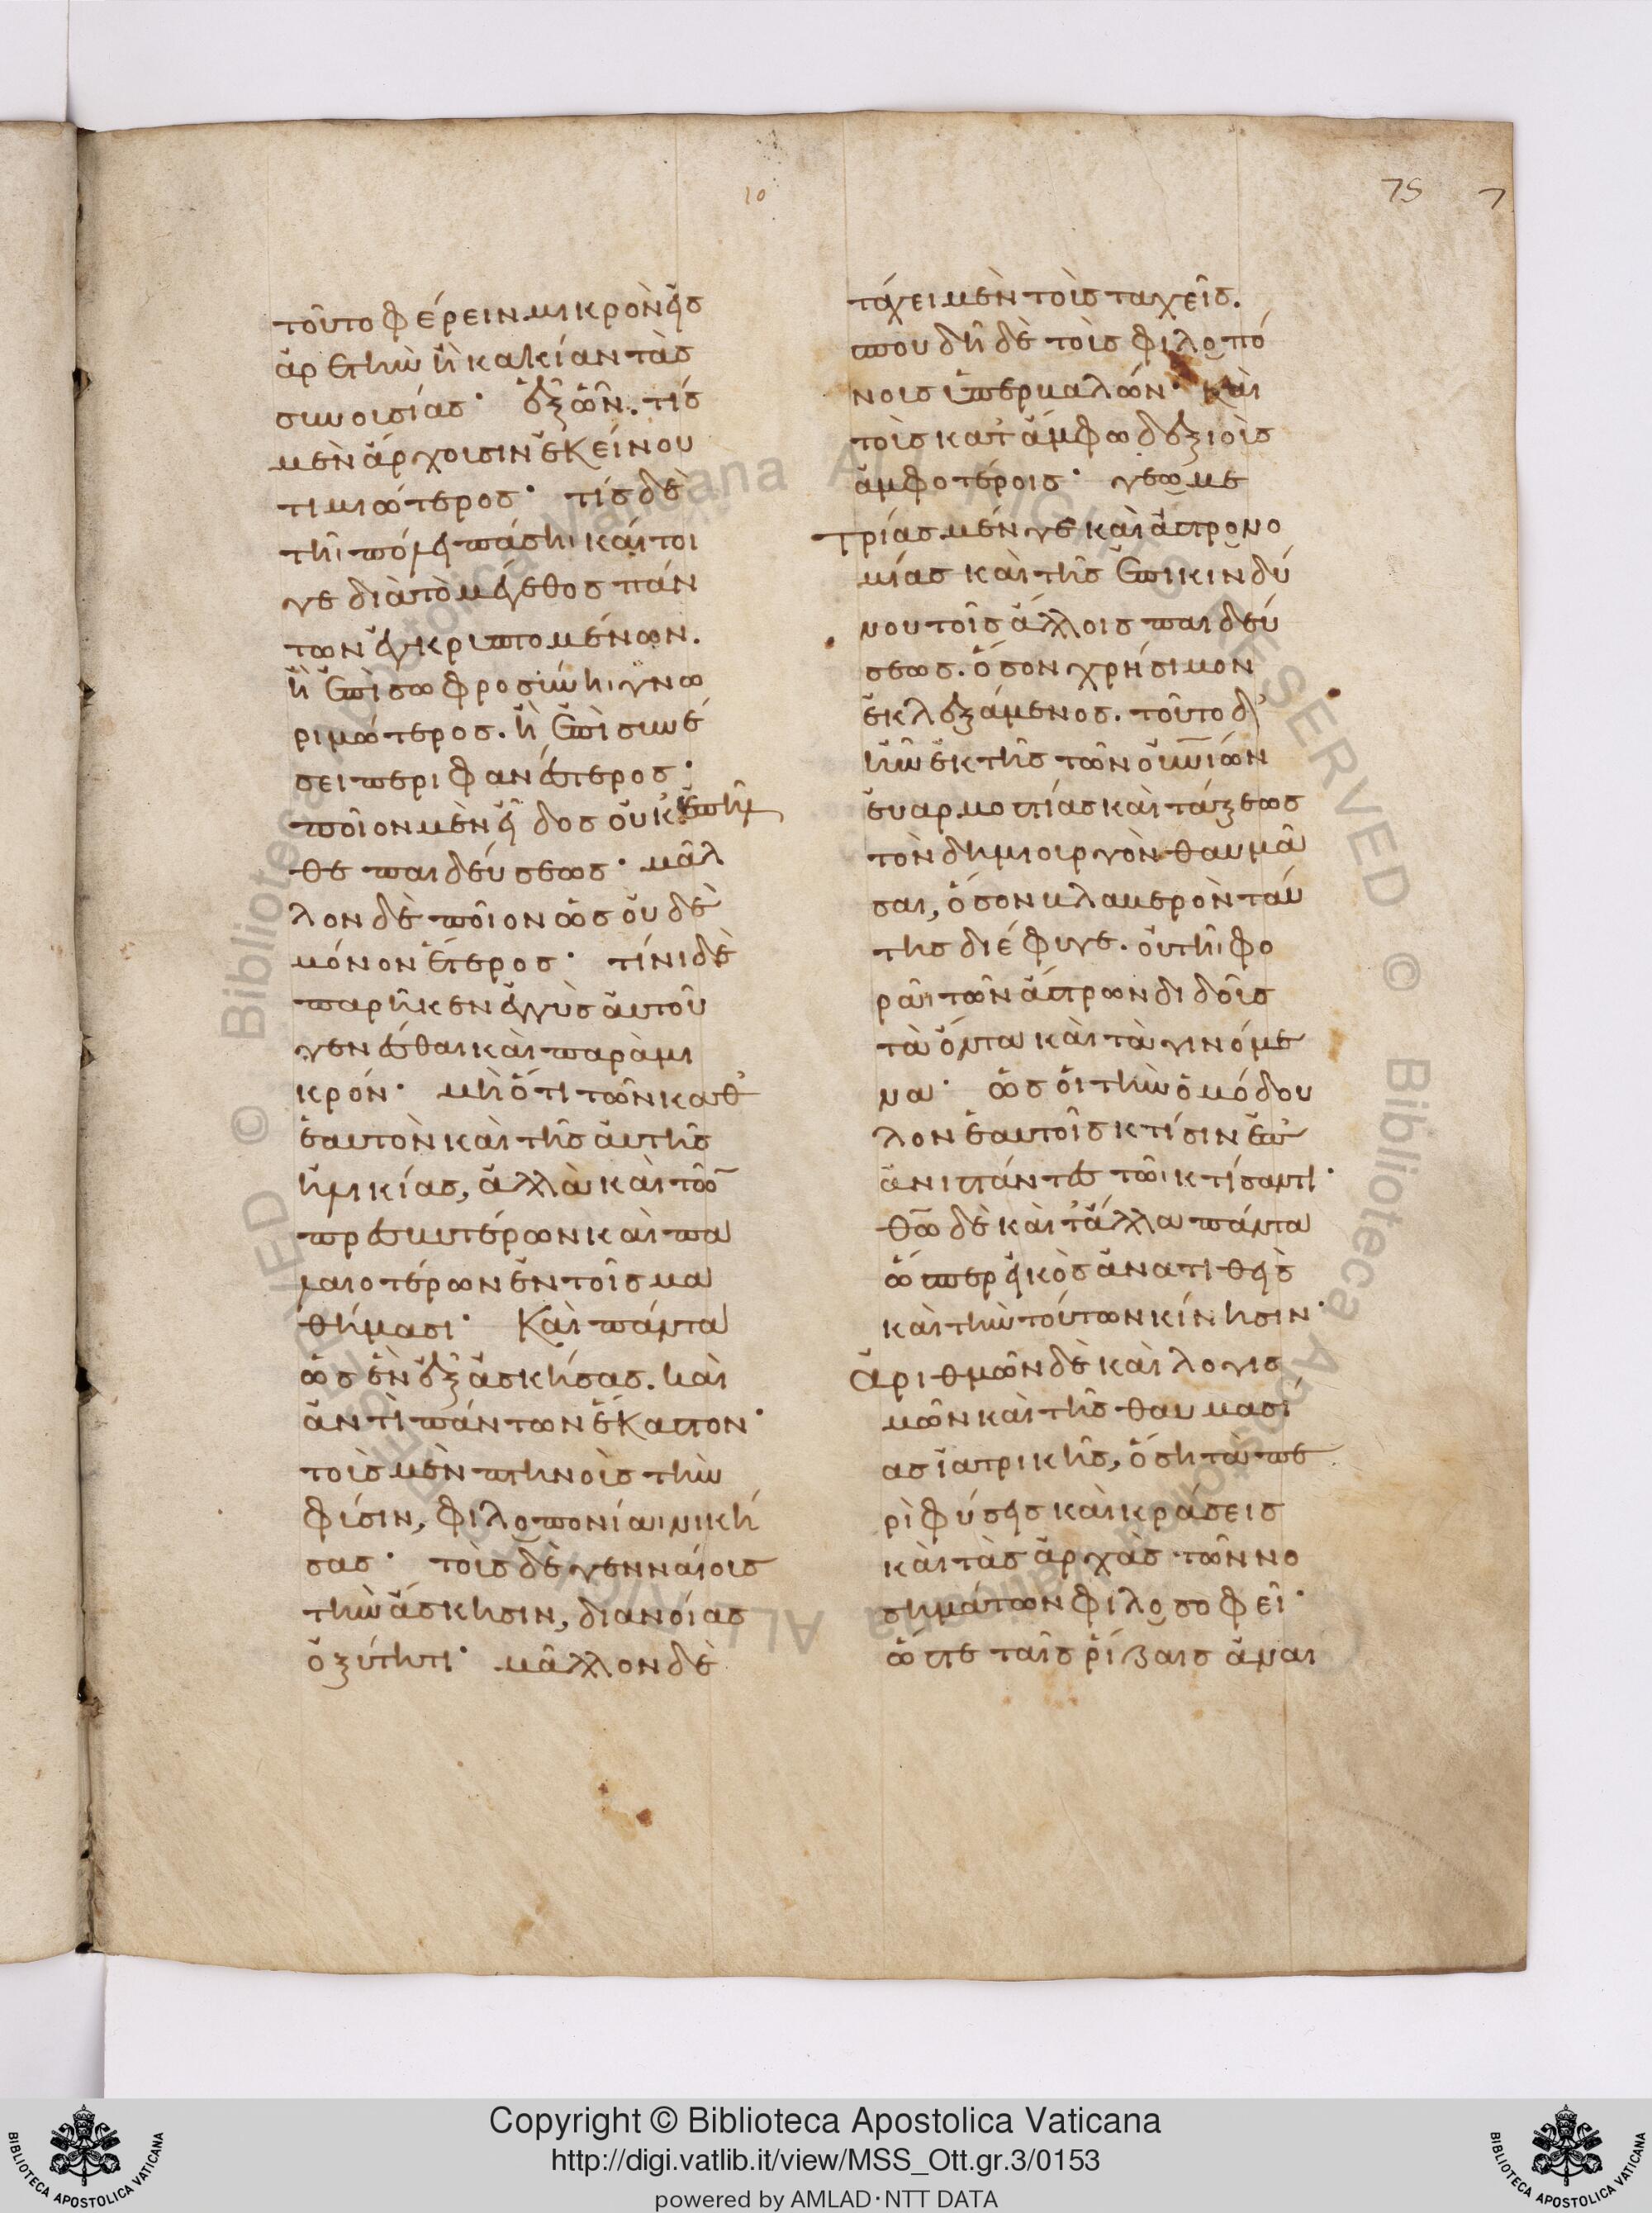 τοῦτο φέρειν μικρὸν εἰς
ἀρετὴν ἢ κακίαν τὰς
συνουσίας· ἐξ ὧν. τίς
μὲν ἄρχουσιν ἐκείνου
τιμιώτερος· τίς δὲ
τῆι πόλει πάσηι καί τοι
γε διὰ τὸ μέγεθος πάν
των ἐγκρυπτομένων.
ἢ ἐπὶ σωφροσύνηι γνω
ριμώτερος. ἢ ἐπὶ συνέ
σει περιφανέστερος·
ποῖον μὲν εἶδος οὐκ ἐπῆλ
θε παιδεύσεως· μᾶλ
λον δὲ ποῖον ὡς οὐδὲ
μόνον ἕτερος· τίνι δὲ
παρῆκεν ἐγγὺς αὐτοῦ
γενέσθαι καὶ παρὰ μι
κρόν· μὴ ὅτι τῶν καθ᾽
ἑαυτὸν καὶ τῆς αὐτῆς
ἡλικίας, ἀλλὰ καὶ τῶ̅
πρεσβυτέρων καὶ πα
λαιοτέρων ἐν τοῖς μα
θήμασι· Καὶ πάντα
ὡς ἓν ἐξασκήσας. καὶ
ἀντὶ πάντων ἕκαστον·
τοὺς μὲν πτηνοὺς τὴν
φύσιν, φιλοπονίαι νική
σας· τοὺς δὲ γενναίους
τὴν ἄσκησιν, διανοίας
ὀξύτητι· μᾶλλον δὲ
τάχει μὲν τοὺς ταχεῖς.
σπουδῆ δὲ τοὺς φιλοπό
νους ὑπερβαλών· καὶ
τοὺς κατ᾽ ἄμφω δεξιοὺς
ἀμφοτέροις· γεωμε
τρίας μέν γε καὶ ἀστρονο
μίας καὶ τῆς ἐπικινδύ
νου τοῖς ἄλλοις παιδεύ
σεως. ὅσον χρήσιμον
ἐκλεξάμενος. τοῦτο δ᾽
ἦν ἐκ τῆς τῶν οὐ̅νίων
εὐαρμοστίας καὶ τάξεως
τὸν δημιουργὸν θαυμά
σαι, ὅσον βλαβερὸν ταύ
της διέφυγε. οὐ τῆι φο
ρᾶι τῶν ἄστρων διδοὺς
τὰ ὄντα καὶ τὰ γινόμε
να· ὡς οἱ τὴν ὁμόδου
λον ἑαυτοῖς κτίσιν ἐπ
ανιστάντες τῶι κτίσαντι·
θ̅ῶ δὲ καὶ τἄλλα πάντα
ὥσπερ εἰκὸς ἀνατιθεὶς
καὶ τὴν τούτων κίνησιν·
Ἀριθμῶν δὲ καὶ λογισ
μῶν καὶ τῆς θαυμασί
ας ἰατρικῆς, ὅση τὰ πε
ρὶ φύσεις καὶ κράσεις
καὶ τὰς ἀρχὰς τῶν νο
σημάτων φιλοσοφεῖ·
ὥστε ταῖς ῥίζαις ἀναι
10
75
7
Copyright © Biblioteca Apostolica Vaticana
http://digi.vatlib.it/view/MSS_Ott.gr.3/0153
powered by AMLAD·NTT DATA